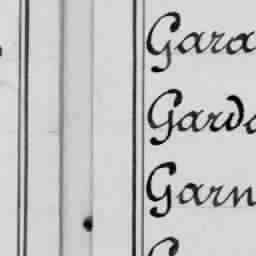 Gara
Gard
Garn